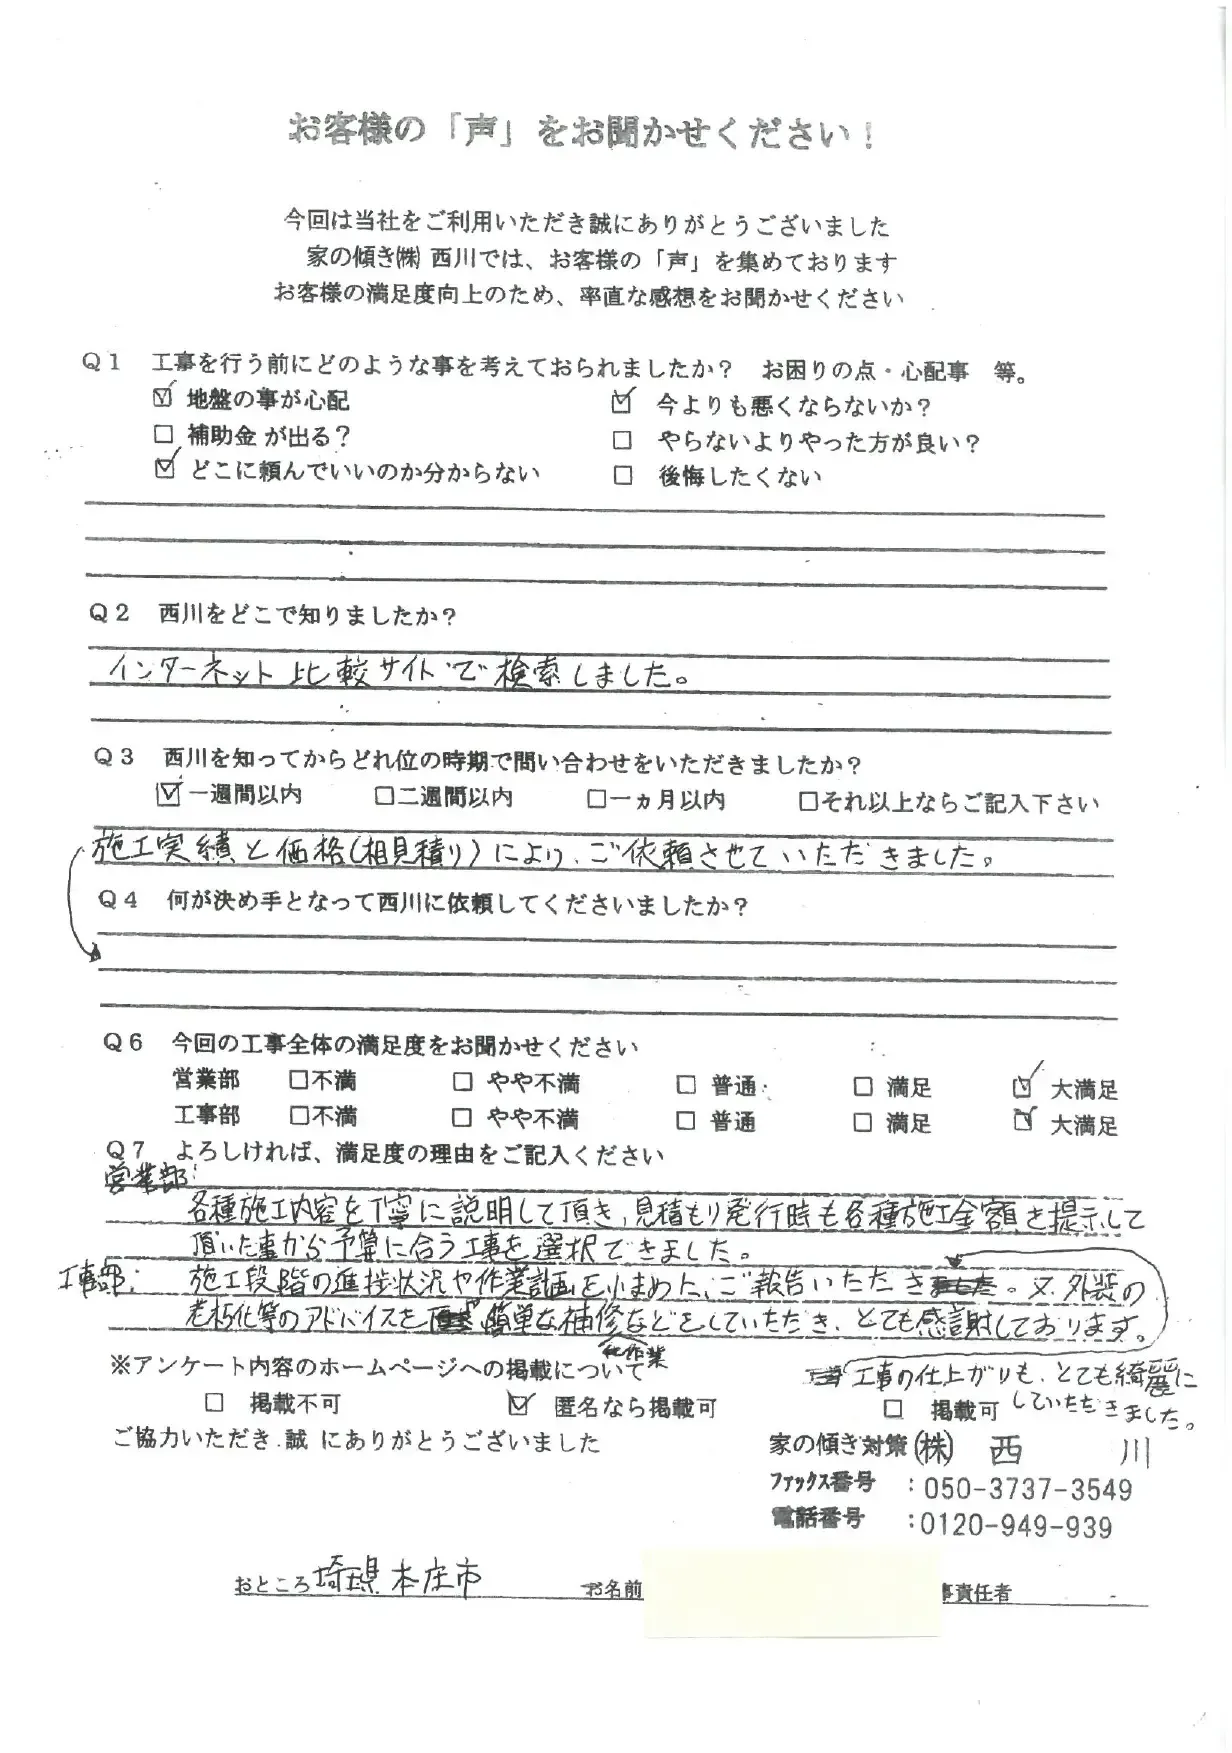 お客様の「声」をお聞かせください！
今回は当社をご利用いただき誠にありがとうございました
家の傾き㈱西川では、お客様の「声」を集めております
お客様の満足度向上のため、率直な感想をお聞かせください
Ｑ１　工事を行う前にどのような事を考えておられましたか？　お困りの点・心配事　等。
☑ 地盤の事が心配　☑ 今よりも悪くならないか？
□ 補助金が出る？　□ やらないよりやった方が良い？
☑ どこに頼んでいいのか分からない　□ 後悔したくない
Ｑ２　西川をどこで知りましたか？
インターネット比較サイトで検索しました。
Ｑ３　西川を知ってからどれ位の時期で問い合わせをいただきましたか？
☑一週間以内　□二週間以内　□一ヵ月以内　□それ以上ならご記入下さい
施工実績と価格(相見積り)により、ご依頼させていただきました。
Ｑ４　何が決め手となって西川に依頼してくださいましたか？
Ｑ６　今回の工事全体の満足度をお聞かせください
営業部　□不満　□ やや不満　□ 普通　□ 満足　☑ 大満足
工事部　□不満　□ やや不満　□ 普通　□ 満足　☑ 大満足
Ｑ７　よろしければ、満足度の理由をご記入ください
営業部:
各種施工内容を丁寧に説明して頂き、見積もり発行時も各種施工金額を提示して
頂いた事から予算に合う工事を選択できました。
工事部: 施工段階の進捗状況や作業計画を小まめに、ご報告いただき。又、外装の
老朽化等のアドバイスを簡単な補修などをしていただき、とても感謝しております。
他作業
※アンケート内容のホームページへの掲載について
工事の仕上がりも、とても綺麗に
していただきました。
□ 掲載不可　☑ 匿名なら掲載可　□ 掲載可
ご協力いただき誠にありがとうございました
家の傾き対策(株)　西　川
ファックス番号　：050-3737-3549
電話番号　：0120-949-939
おところ 埼玉県本庄市　お名前　事責任者